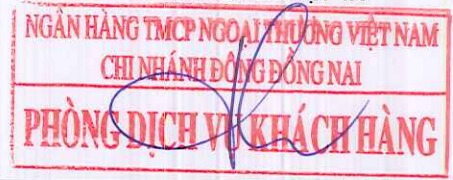 NGÂN HÀNG TMCP NGOẠI THƯƠNG VIỆT NAM
CHI NHÁNH ĐÔNG ĐỒNG NAI
PHÒNG DỊCH VỤ KHÁCH HÀNG